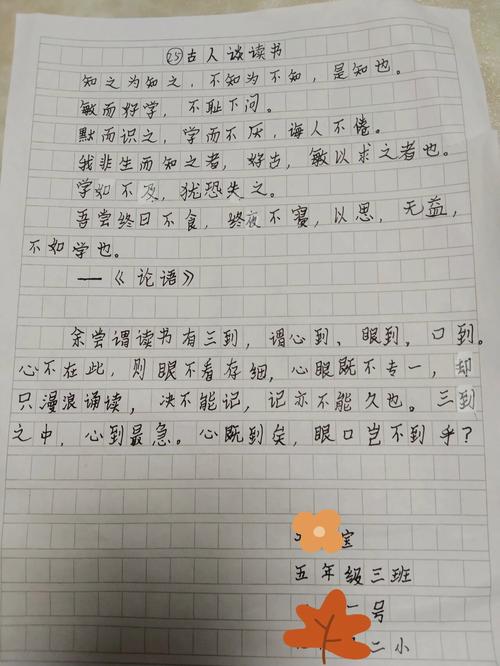 ㉕古人谈读书
知之为知之，不知为不知，是知也。
敏而好学，不耻下问。
默而识之，学而不厌，诲人不倦。
我非生而知之者，好古，敏以求之者也。
学如不及，犹恐失之。
吾尝终日不食，终夜不寝，以思，无益，
不如学也。
——《论语》
余尝谓读书有三到，谓心到、眼到、口到。
心不在此，则眼不看存细，心眼既不专一，却
只漫浪诵读，决不能记，记亦不能久也。三到
之中，心到最急。心既到矣，眼口岂不到乎？
宝
五年级三班
号
二小